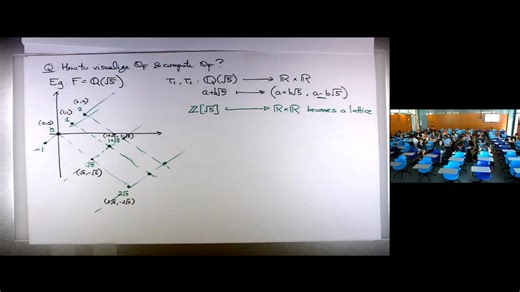 Q: How to visualize O_F & compute O_F ?
Eg. F = Q(√5)
τ₁, τ₂ : Q(√5) → R × R
a+b√5 ↦ (a+b√5, a-b√5)
Z[√5] ↪ R×R becomes a lattice
(2,2)
2
(1,1)
1
(0,0)
0
-1
1+√5
√5
(√5, -√5)
2√5
(2√5, -2√5)